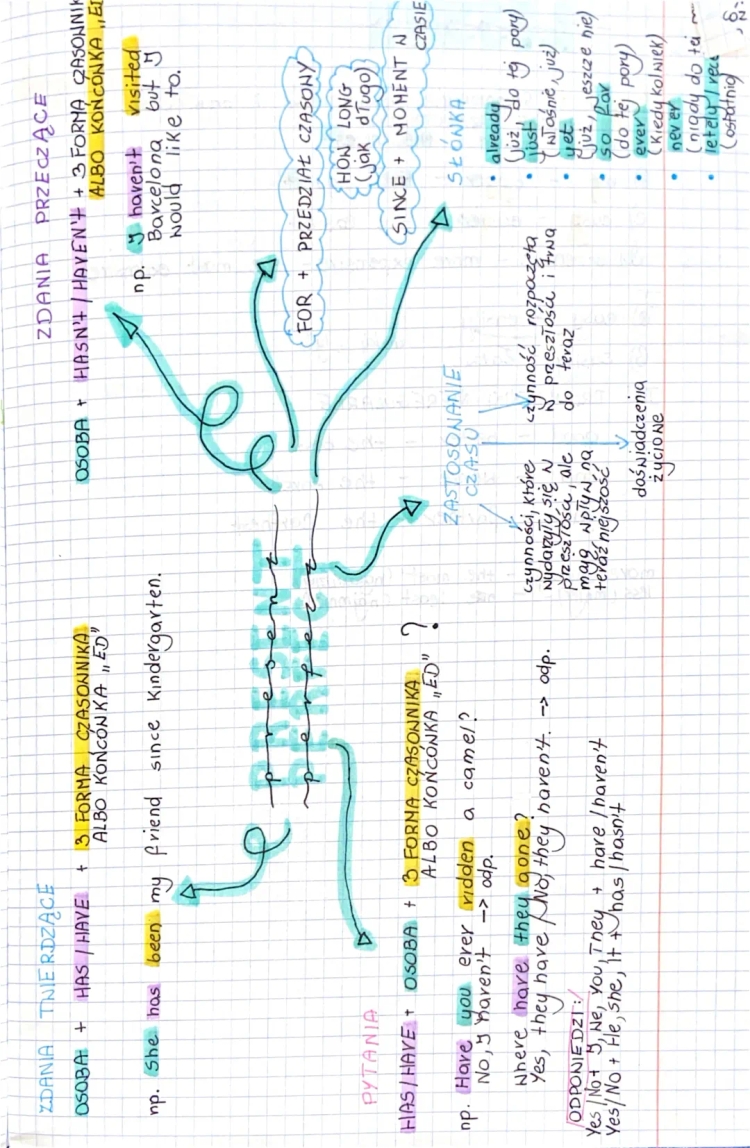 ZDANIA TWIERDZĄCE
OSOBA + HAS/HAVE + 3 FORMA CZASOWNIKA
ALBO KOŃCÓWKA „ED"
np. She has been my friend since kindergarten.
ZDANIA PRZECZĄCE
OSOBA + HASN'T/HAVEN'T + 3 FORMA CZASOWNIK
ALBO KOŃCÓWKA „E
np. I haven't visited
Barcelona but I
would like to.
PRESENT
present
PERFECT
perfect
FOR + PRZEDZIAŁ CZASOWY
HOW LONG
(jak długo)
SINCE + MOMENT W
CZASIE
PYTANIA
HAS/HAVE + OSOBA + 3 FORMA CZASOWNIKA
ALBO KOŃCÓWKA „ED" ?
np. Have you ever ridden a camel?
No, I haven't -> odp.
Where have they gone?
Yes, they have / No, they haven't. -> odp.
ODPOWIEDZI:
Yes/No + I, We, You, They + have/haven't
Yes/No + He, She, It + has/hasn't
ZASTOSOWANIE
CZASU
czynności, które
wydarzyły się w
przeszłości, ale
mają wpływ na
teraźniejszość
czynność rozpoczęta
w przeszłości i trwa
do teraz
doświadczenia
życiowe
SŁÓWKA
• already
(już, do tej pory)
• just
(właśnie, już)
• yet
(już, jeszcze nie)
• so far
(do tej pory)
• ever
(kiedykolwiek)
• never
(nigdy do tej
•
(ostatnio)